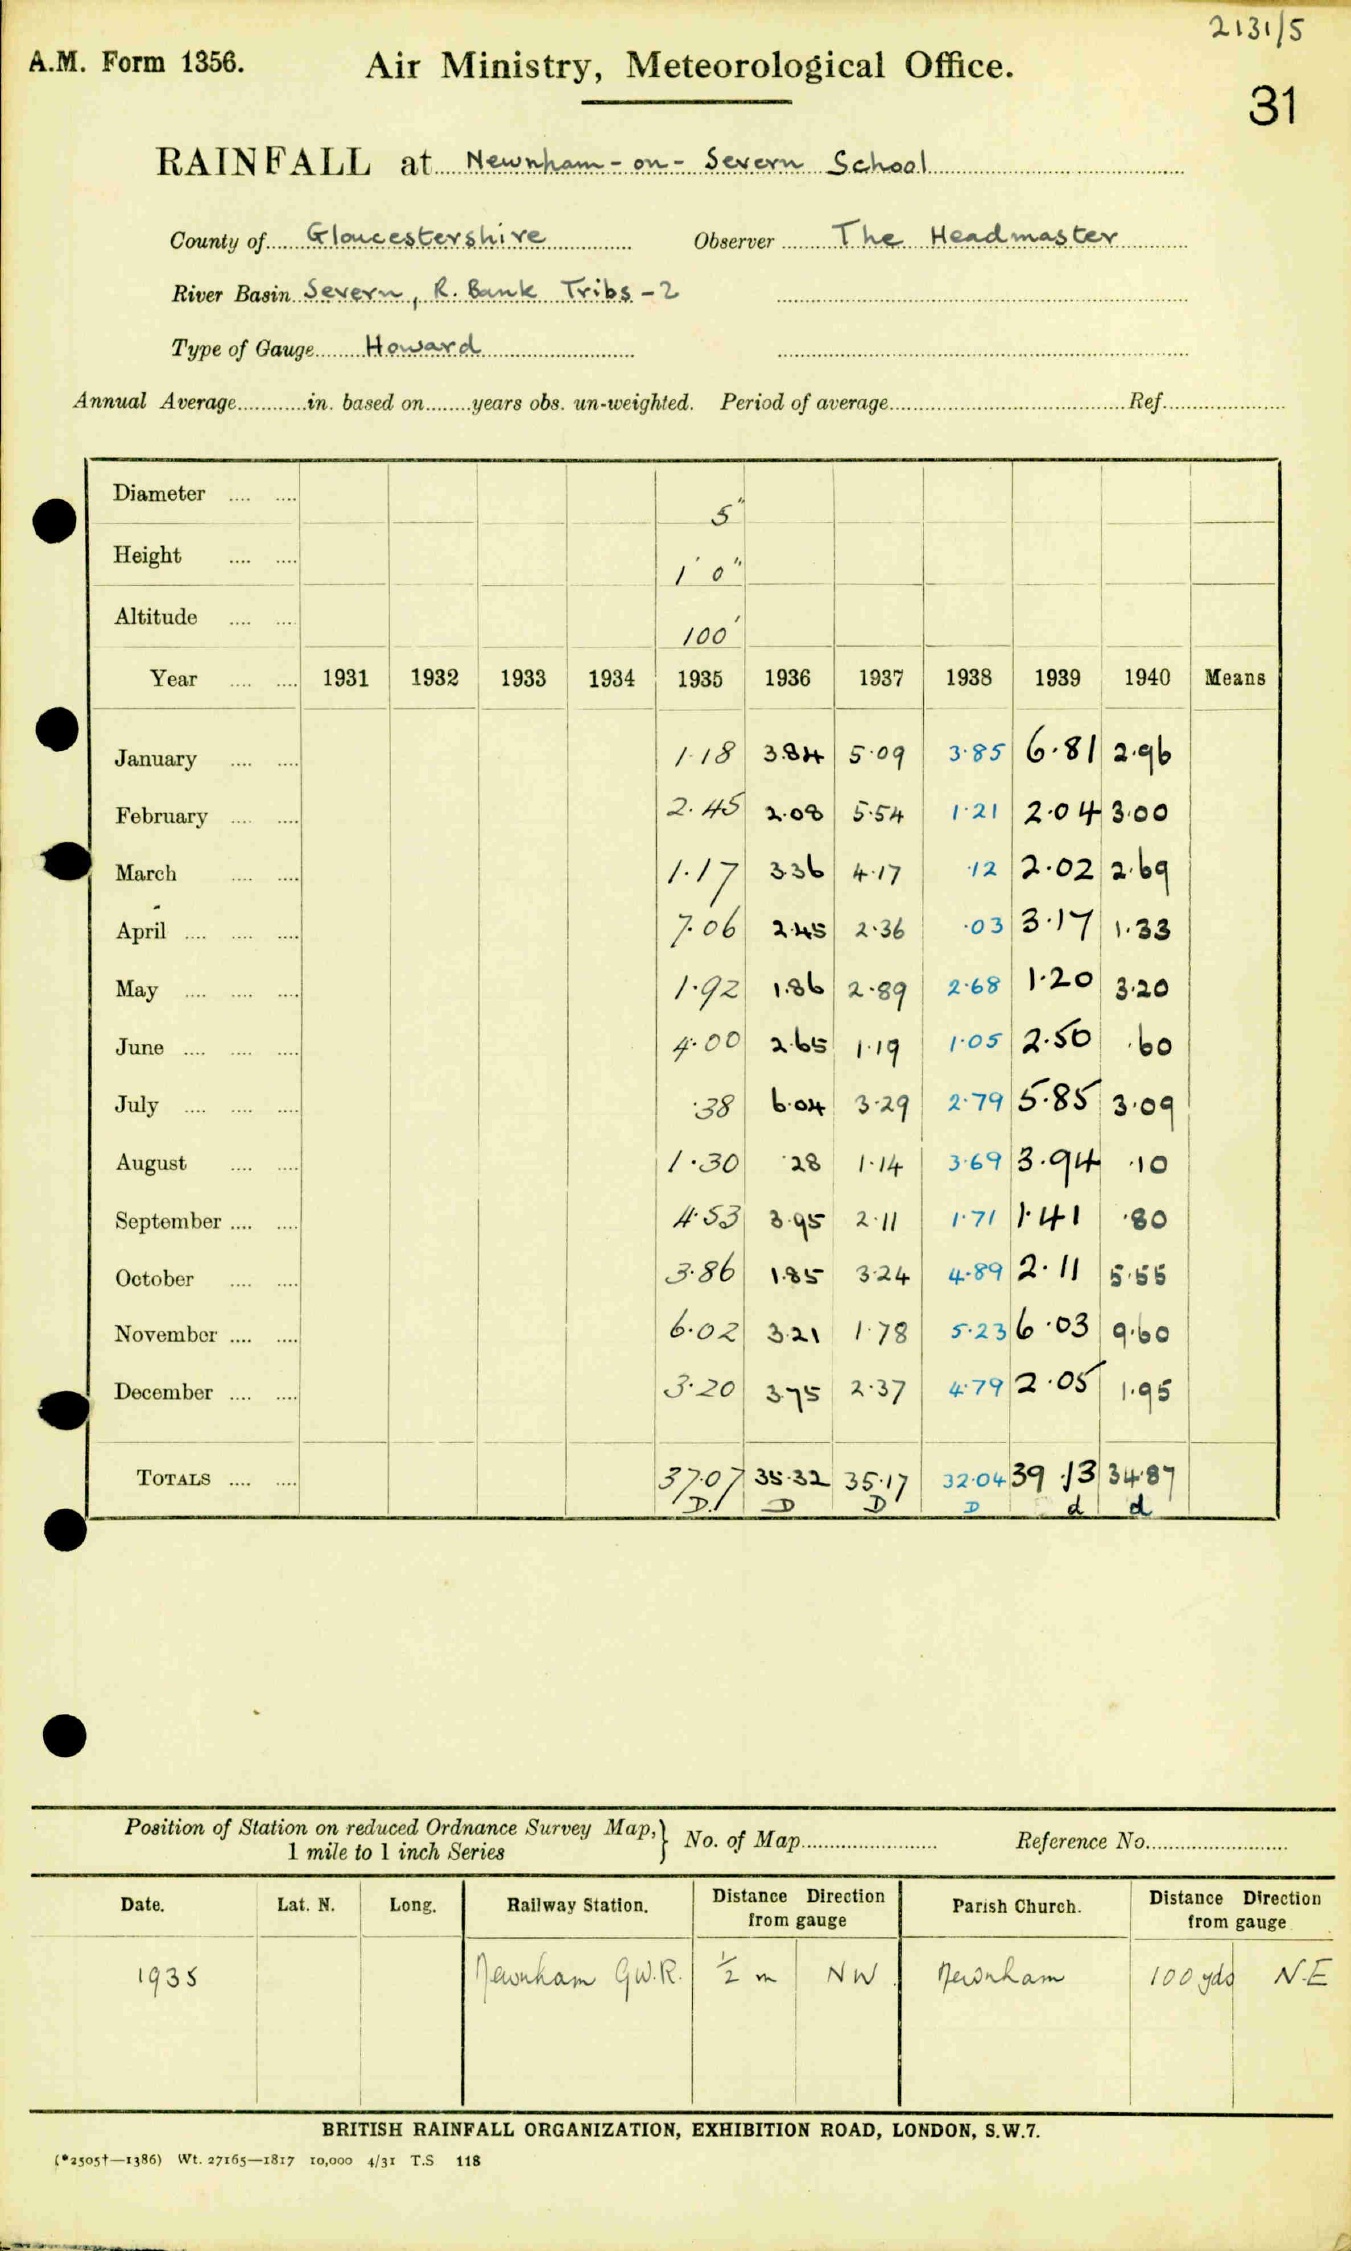 2131/5
A.M. Form 1356. Air Ministry, Meteorological Office.
31
RAINFALL at Newnham-on-Severn School
County of Gloucestershire Observer The Headmaster
River Basin Severn, R. Bank Tribs-2
Type of Gauge Howard
Annual Average............in. based on........years obs. un-weighted. Period of average............Ref............
Diameter .... .... 5"
Height .... .... 1' 0"
Altitude .... .... 100'
Year .... .... 1931 1932 1933 1934 1935 1936 1937 1938 1939 1940 Means
January .... .... 1.18 3.84 5.09 3.85 6.81 2.96
February .... .... 2.45 2.08 5.54 1.21 2.04 3.00
March .... .... 1.17 3.36 4.17 .12 2.02 2.69
April .... .... .... 7.06 2.45 2.36 .03 3.17 1.33
May .... .... .... 1.92 1.86 2.89 2.68 1.20 3.20
June .... .... .... 4.00 2.65 1.19 1.05 2.50 .60
July .... .... .... .38 6.04 3.29 2.79 5.85 3.09
August .... .... 1.30 .28 1.14 3.69 3.94 .10
September .... .... 4.53 3.95 2.11 1.71 1.41 .80
October .... .... 3.86 1.85 3.24 4.89 2.11 5.55
November .... .... 6.02 3.21 1.78 5.23 6.03 9.60
December .... .... 3.20 3.75 2.37 4.79 2.05 1.95
TOTALS .... .... 37.07 35.32 35.17 32.04 39.13 34.87
D. D D D d d
Position of Station on reduced Ordnance Survey Map, 1 mile to 1 inch Series } No. of Map............ Reference No............
Date. Lat. N. Long. Railway Station. Distance Direction from gauge Parish Church. Distance Direction from gauge
1935 Newnham G.W.R. 1/2 m NW. Newnham 100 yds N.E
BRITISH RAINFALL ORGANIZATION, EXHIBITION ROAD, LONDON, S.W.7.
(*2505†—1386) Wt. 27165—1817 10,000 4/31 T.S 118